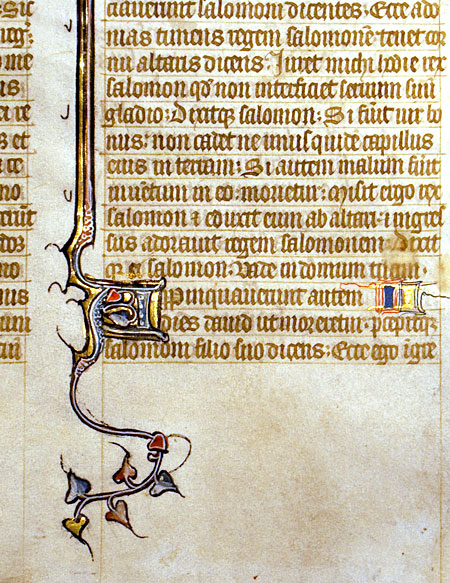 Sic
me
s et
no
nis
ciauerunt salomoni dicentes: Ecce ado
nias timens regem salomonē tenet cor
nu altaris dicens: Iuret michi hodie rex
salomon qđ non interficiet seruum suū
gladio: dixitqꝫ salomon: Si fuīt uir bo
nus: non cadet ne unus quidē capillus
eius in terram: Si autem malum fuīt
inuentum in eo morietur: misit ergo rex
salomon ⁊ eduxit eum ab altari: ⁊ ingres
sus adorauit regem salomonem. Dixit
qꝫ ei salomon: Vade in domum tuam.
Appinquauerunt autem
dies dauid ut moreretur: pcepitqꝫ
salomoni filio suo dicens: Ecce ego īgre